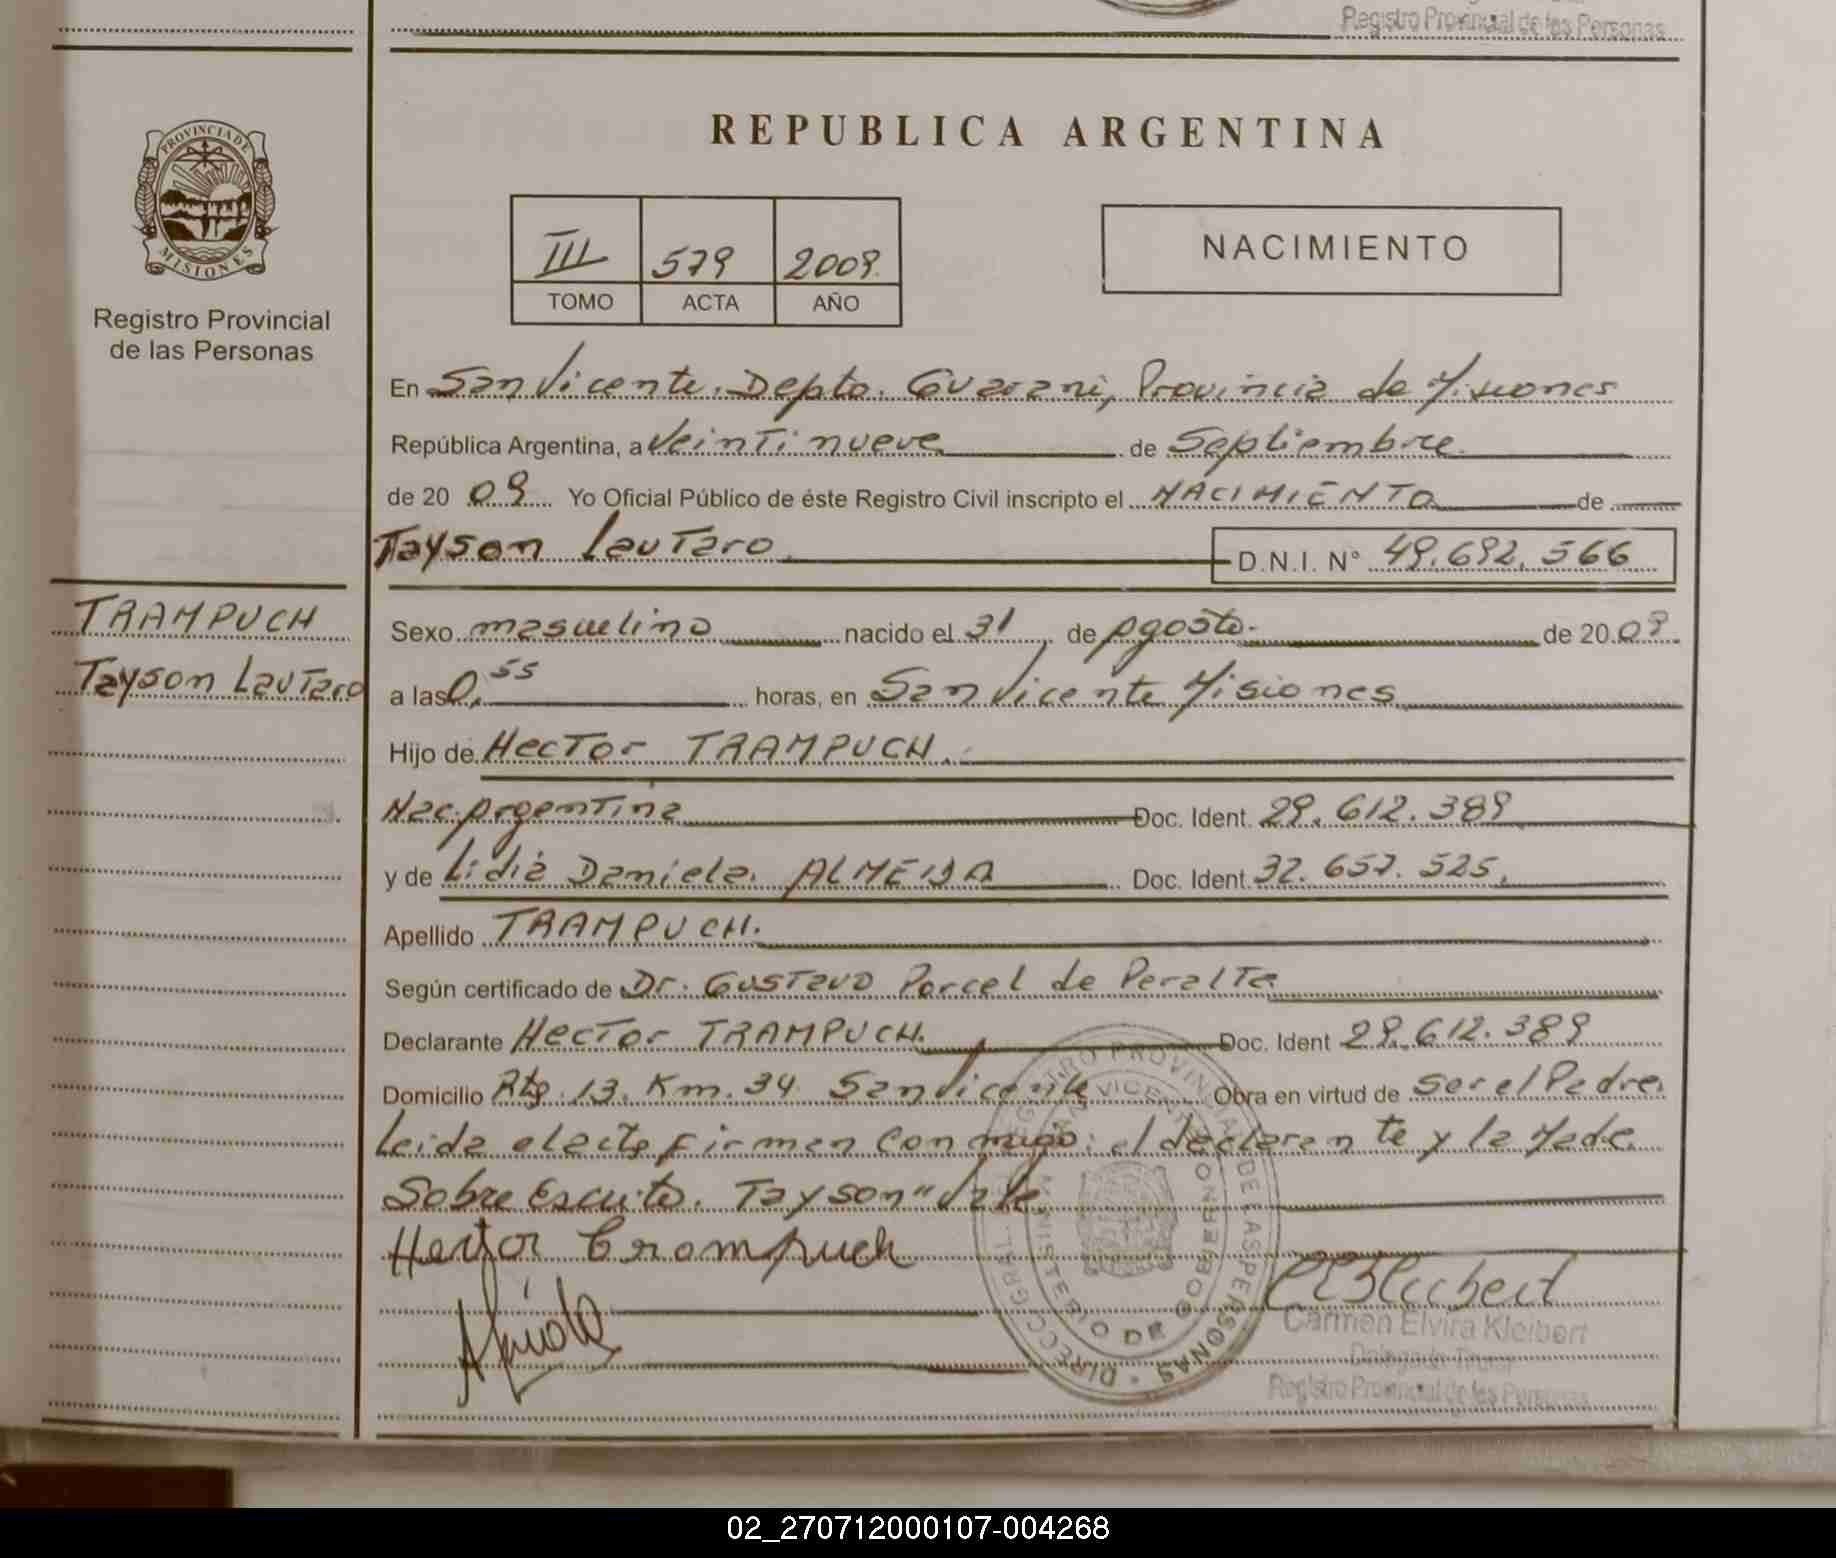 Registro Provincial de las Personas
PROVINCIA DE MISIONES
Registro Provincial
de las Personas
TRAMPUCH
Tayson Lautaro
REPUBLICA ARGENTINA
III 579 2009
TOMO ACTA AÑO
NACIMIENTO
En San Vicente. Depto. Guarani, Provincia de Misiones
República Argentina, a Veintinueve de Septiembre
de 20 09 Yo Oficial Público de éste Registro Civil inscripto el NACIMIENTO de
Tayson Lautaro D.N.I. N° 49.692.566
Sexo masculino nacido el 31 de Agosto. de 20 09
a las 0,55 horas, en San Vicente Misiones
Hijo de Hector TRAMPUCH.
Nac. Argentina Doc. Ident. 29.612.389
y de Lidia Daniela. ALMEIDA Doc. Ident. 32.657.525.
Apellido TRAMPUCH.
Según certificado de Dr. Gustavo Porcel de Peralta
Declarante Hector TRAMPUCH. Doc. Ident 29.612.389
Domicilio Rta. 13. Km. 34 San Vicente Obra en virtud de ser el Padre.
Leida el acta firman conmigo: el declarante y la Made.
Sobre Escrito. Tayson" Vale
Hector Trompuch
Carmen Elvira Kleibert
Delegada Titular
Registro Provincial de las Personas
02_270712000107-004268